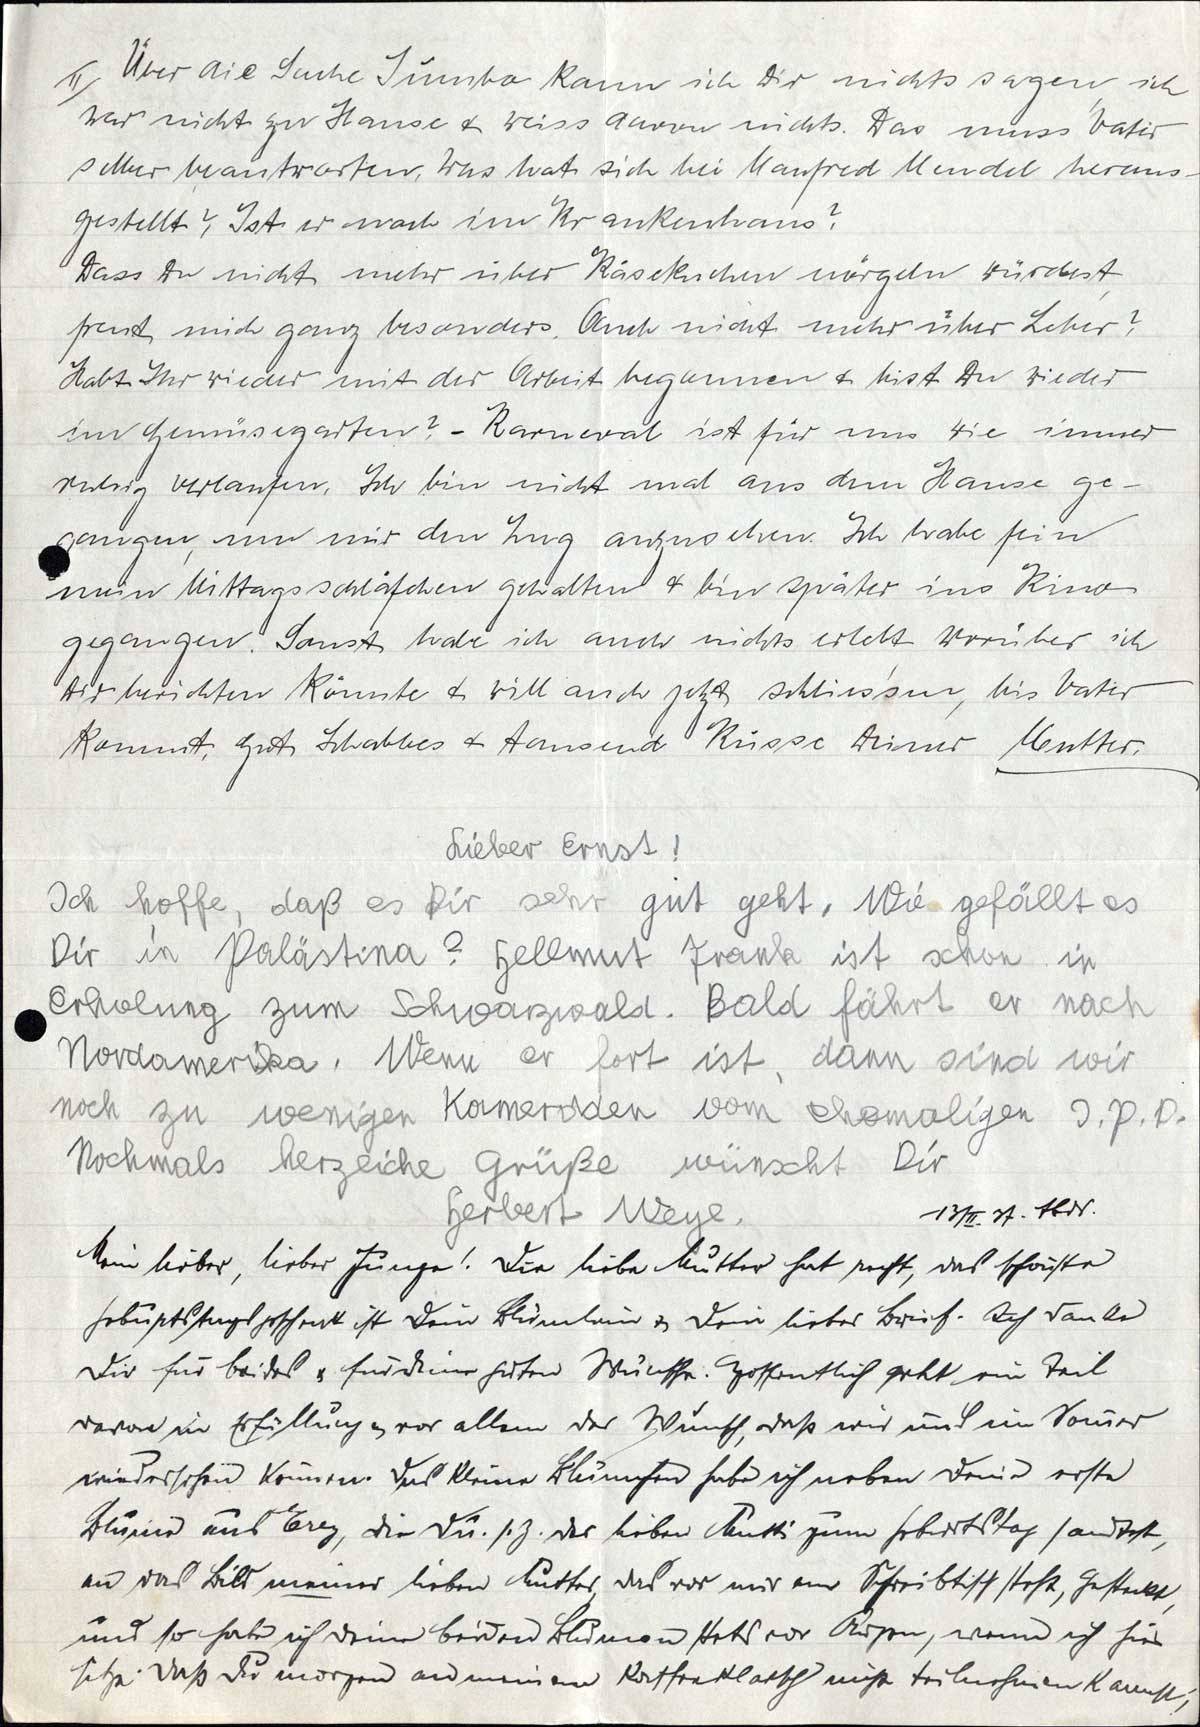 II/ Über die Sache Jumbo kann ich Dir nichts sagen, ich
war nicht zu Hause & weiss davon nichts. Das muss Vater
selber beantworten. Was hat sich bei Manfred Mendel heraus-
gestellt? Ist er noch im Krankenhaus?
Dass Du nicht mehr über Käsekuchen nörgeln würdest,
freut mich ganz besonders. Auch nicht mehr über Leber?
Habt Ihr wieder mit der Arbeit begonnen & bist Du wieder
im Gemüsegarten? - Karneval ist für uns wie immer
ruhig verlaufen. Ich bin nicht mal aus dem Hause ge-
gangen, um mir den Zug anzusehen. Ich habe fein
mein Mittagsschläfchen gehalten & bin später ins Kino
gegangen. Sonst habe ich auch nichts erlebt worüber ich
Dir berichten könnte & will auch jetzt schliessen, bis Vater
kommt. Gut Schabbes & tausend Küsse Deiner Mutter.
Lieber Ernst!
Ich hoffe, daß es Dir sehr gut geht. Wie gefällt es
Dir in Palästina? Hellmut Frank ist schon in
Erholung zum Schwarzwald. Bald fährt er nach
Nordamerika. Wenn er fort ist, dann sind wir
noch zu wenigen Kameraden vom ehemaligen J.P.D.
Nochmals herzliche Grüße wünscht Dir
Herbert Weye.
13/II. 37.
Mein lieber, lieber Junge! Die liebe Mutter hat recht, das schönste
Geburtstagsgeschenk ist Dein Blümlein & Dein lieber Brief. Ich danke
Dir für beides & für deine guten Wünsche. Hoffentlich geht ein Teil
davon in Erfüllung & vor allem der Wunsch, daß wir uns im Sommer
wiedersehen können. Das kleine Blümchen habe ich neben Deine erste
Blume aus Erez, die Du s.Z. der lieben Mutti zum Geburtstag sandtest,
an das Bild meiner lieben Mutter, das vor mir am Schreibtisch steht, gesteckt,
und so habe ich Deine beiden Blumen stets vor Augen, wenn ich hier
sitze. Daß Du morgen an meinem Kaffeeklatsch nicht teilnehmen kannst,